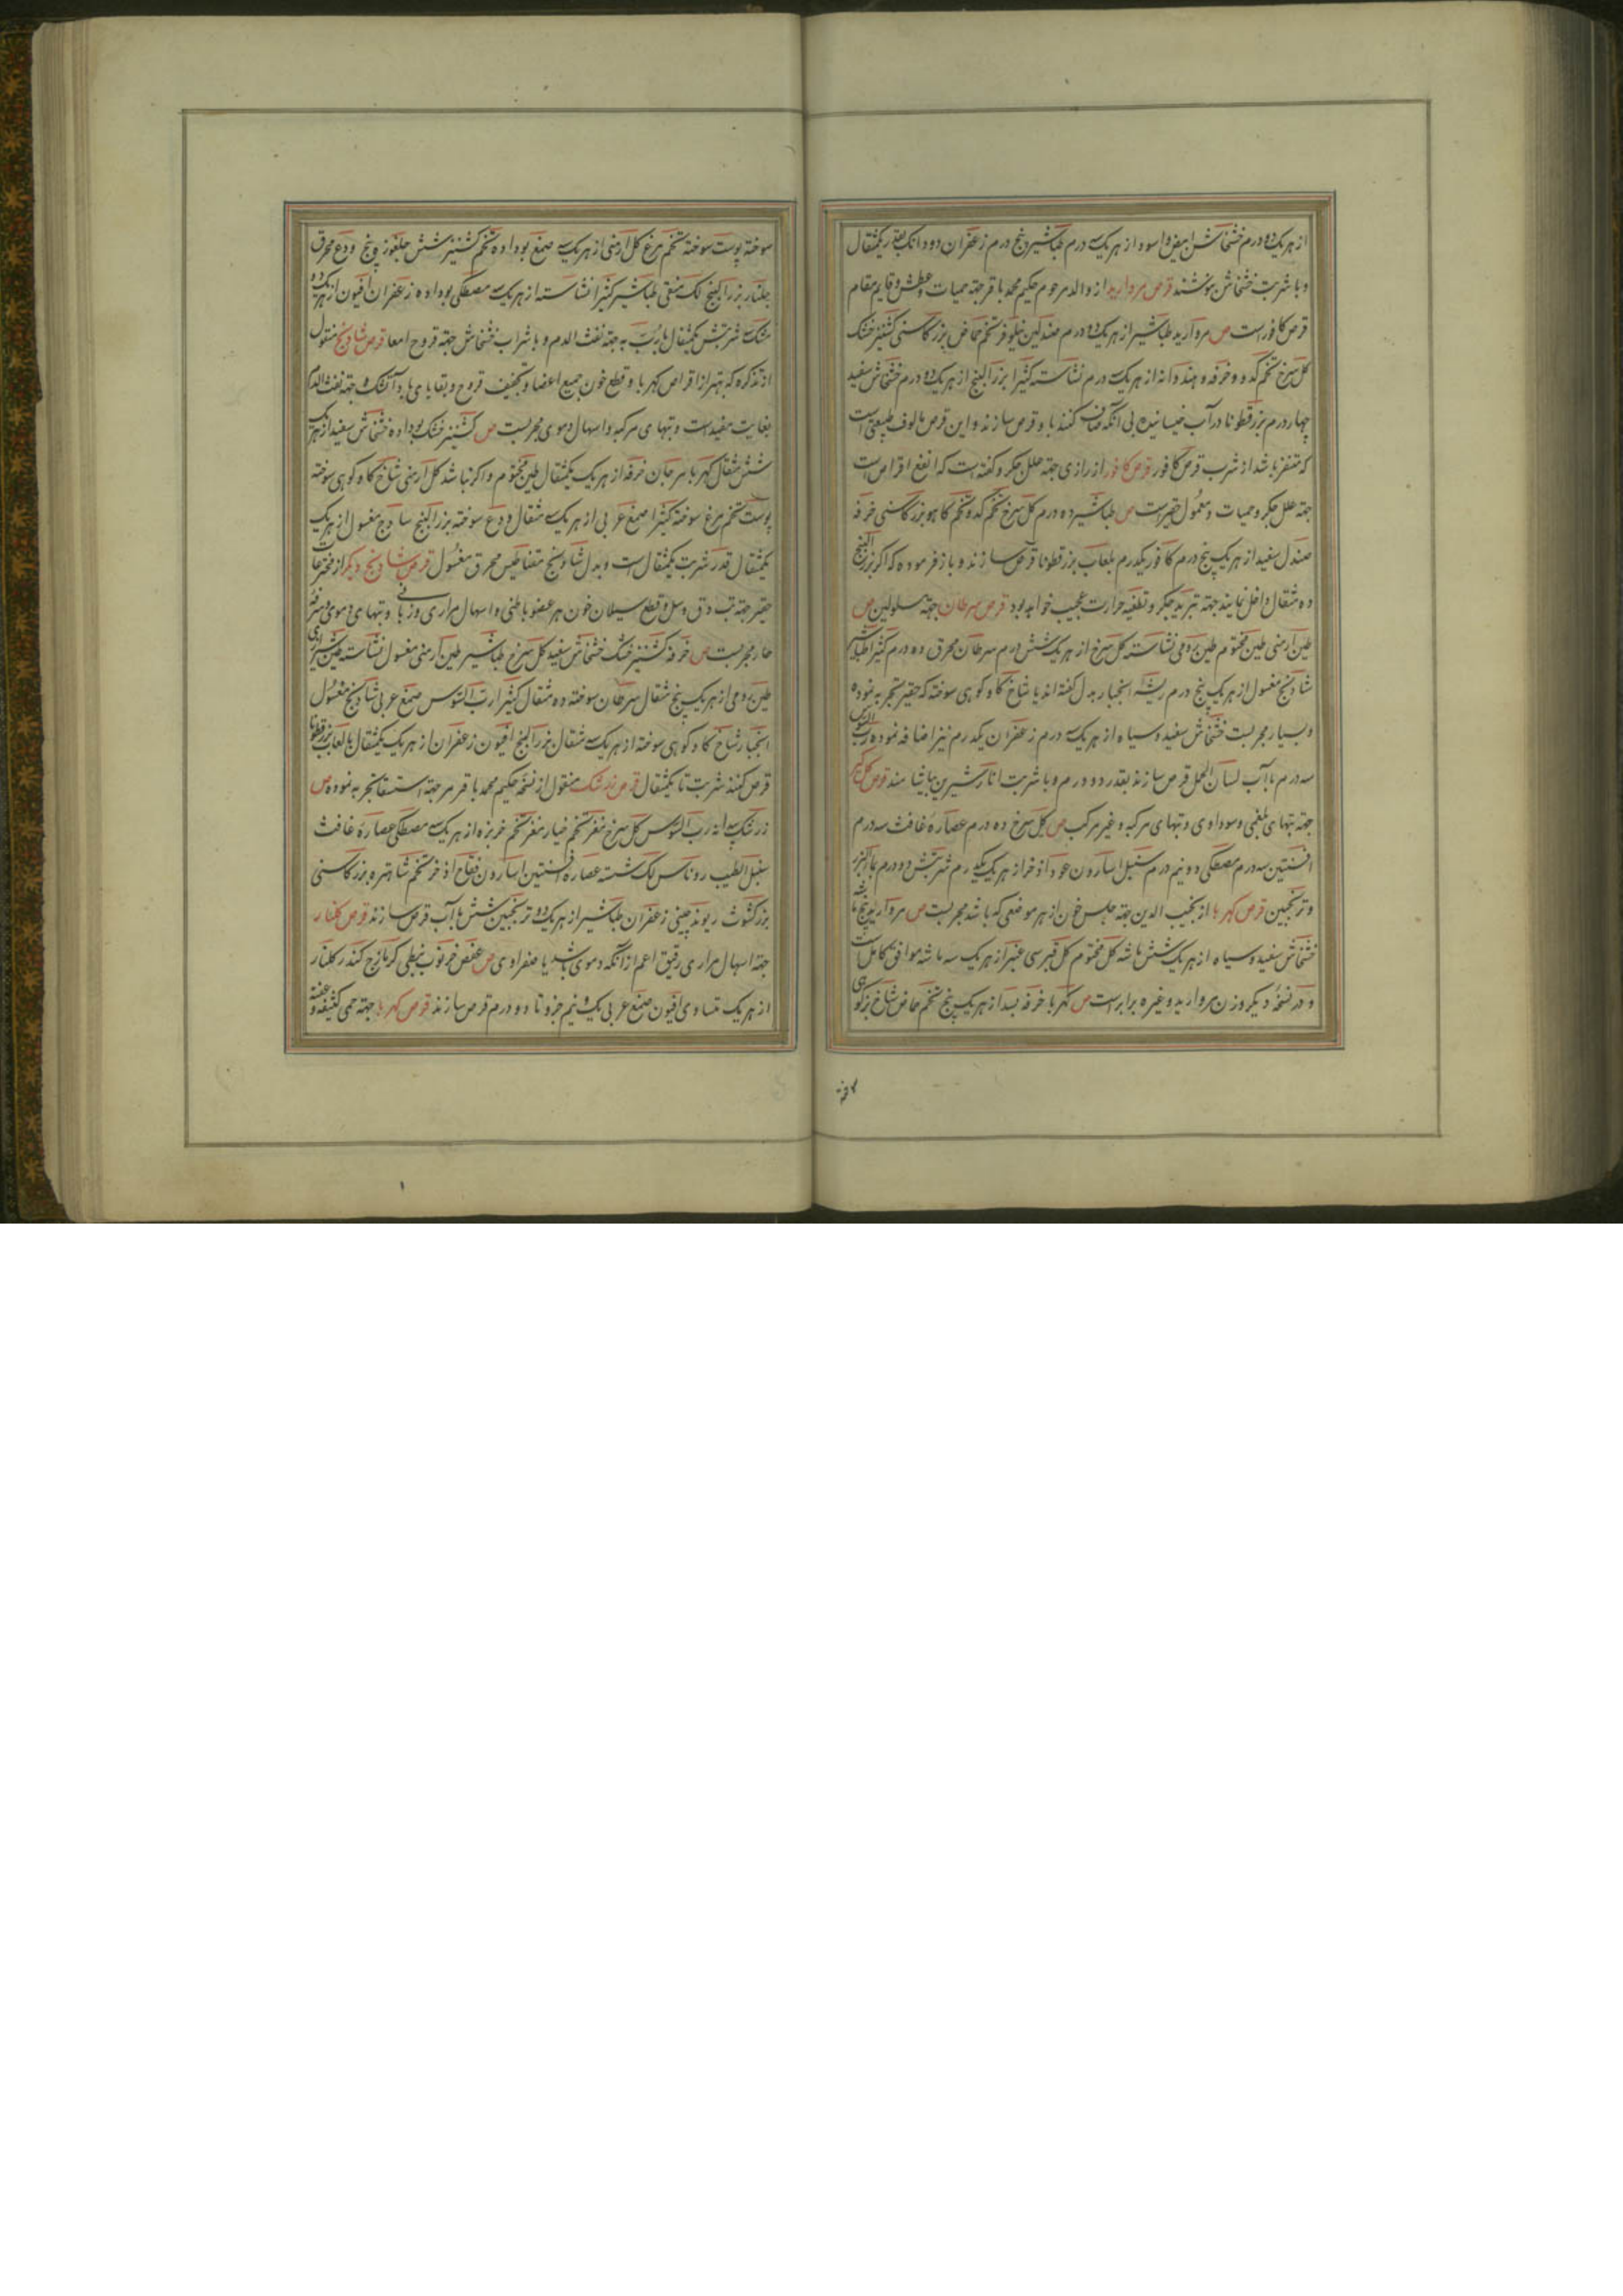 از هریک ده درم خشخاش ابیض و اسود از هریک سه درم طباشیر پنج درم زعفران دو دانک بقدر یکمثقال
و با شربت خشخاش بنوشند قرص مروارید از والد مرحوم حکیم محمد باقر جهة حمیات و عطش و قایم مقام
قرص کافور است ص مروارید طباشیر از هریک ده درم صندلین نیلوفر تخم حماض بزر کاسنی کشنیز خشک
کل سرخ تخم کدو و خرفه و هندوانه از هریک درم نشاسته کثیرا بزر البنج از هریک ده درم خشخاش سفید
چهار درم بزر قطونا در آب خیسانیده بی آنکه صاف کنند با و قرص سازند و این قرص مالوف طبیعتی است
که متنفر باشد از شرب قرص کافور قرص کافور از رازی جهة علل جکر و کفته است که انفع اقراص است
جهة علل جکر و حمیات و معمول حقیر است ص طباشیر ده درم کل سرخ تخم کدو تخم کاهو بزر کاسنی خرفه
صندل سفید از هریک پنج درم کافور یکدرم بلعاب بزر قطونا قرص سازند و باز فرموده که اکر بزر البنج
ده مثقال داخل نمایند جهة تبرید جکر و تطفیه حرارت عجیب خواهد بود قرص سرطان جهة مسلولین ص
طین ارمنی طین مختوم طین رومی نشاسته کل سرخ از هریک شش درم سرطان محرق ده درم کثیرا طباشیر
شادنج مغسول از هریک پنج درم ریشه انجبار بدل کفته اند یا شاخ کاو کوهی سوخته که حقیر تجربه نموده
و بسیار مجربست خشخاش سفید و سیاه از هریک سه درم زعفران یکدرم نیز اضافه نموده رب السوس
سه درم با آب لسان الحمل قرص سازند بقدر دو درم و با شربت انار شیرین بیاشامند قرص کل کبیر
جهة تبهای بلغمی و سوداوی و تبهای مرکبه و غیر مرکب ص کل سرخ ده درم عصاره غافث سه درم
افسنتین سه درم مصطکی دو نیم درم سنبل اسارون عود اذخر از هریک یکدرم شربتش دو درم بماء البزر
و ترنجبین قرص کهربا از نجیب الدین جهة حبس خون از هر موضعی که باشد مجربست ص مروارید پنج ماشه
خشخاش سفید و سیاه از هریک شش ماشه کل مختوم کل قبرسی عنبر از هریک سه ماشه موافق کامل است
و در نسخه دیکر وزن مروارید و غیره برابر است ص کهربا خرفه بسد از هریک پنج تخم حماض شاخ بز کوهی
سوخته پوست سوخته تخم مرغ کل ارمنی از هریک سه صمغ بوداده تخم کشنیز شش جلغوزه پنج ودع محرق
جلنار بزر البنج لک منقی طباشیر کثیرا نشاسته از هریک سه مصطکی بوداده زعفران افیون از هریک ده
مشک سه شربتش یکمثقال با رب به جهة نفث الدم و با شراب خشخاش جهة قروح امعا قرص شادنج منقول
از تذکره که بهتر از اقراص کهربا و قطع خون جمیع اعضا و تجفیف قروح و بقایای باد آتشک و جهة نفث الدم
بغایت مفید است و تبهای مرکبه و اسهال دموی مجربست ص کشنیز خشک بوداده خشخاش سفید از هریک
شش مثقال کهربا مرجان خرفه از هریک یکمثقال طین مختوم و اکر نباشد کل ارمنی شاخ کاو کوهی سوخته
پوست تخم مرغ سوخته کثیرا صمغ عربی از هریک سه مثقال ودع سوخته بزر البنج ساذج مغسول از هریک
یکمثقال قدر شربت یکمثقال است و بدل شادنج مقناطیس محرق مغسول قرص شادنج دیکر از مخترعات
حقیر جهة تب دق و سل و قطع سیلان خون هر عضو باطنی و اسهال مراری و ذوبانی و تبهای دموی و سرفه
حار مجربست ص خرفه کشنیز خشک خشخاش سفید کل سرخ طباشیر طین ارمنی مغسول نشاسته طین شیرازی
طین رومی از هریک پنج مثقال سرطان سوخته ده مثقال کثیرا رب السوس صمغ عربی شادنج مغسول
انجبار شاخ کاو کوهی سوخته از هریک سه مثقال بزر البنج افیون زعفران از هریک یکمثقال با لعاب بزر قطونا
قرص کنند شربت تا یکمثقال قرص زرشک منقول از نسخه حکیم محمد باقر مرجهة استسقا تجربه نموده ص
زرشک بیدانه رب السوس کل سرخ مغز تخم خیار مغز تخم خربزه از هریک سه مصطکی عصاره غافث
سنبل الطیب روناس لک شسته عصاره افسنتین اسارون فقاح اذخر تخم شاهتره بزر کاسنی
بزر کشوث ریوند چینی زعفران طباشیر از هریک ده ترنجبین شش با آب قرص سازند قرص کلنار
جهة اسهال مراری رقیق اعم از آنکه دموی باشد یا صفراوی ص عفص خرنوب نبطی کزمازج کندر کلنار
از هریک مساوی افیون صمغ عربی یک و نیم جزو تا دو درم قرص سازند قرص کهربا جهة حمی کثیفه و عفنه